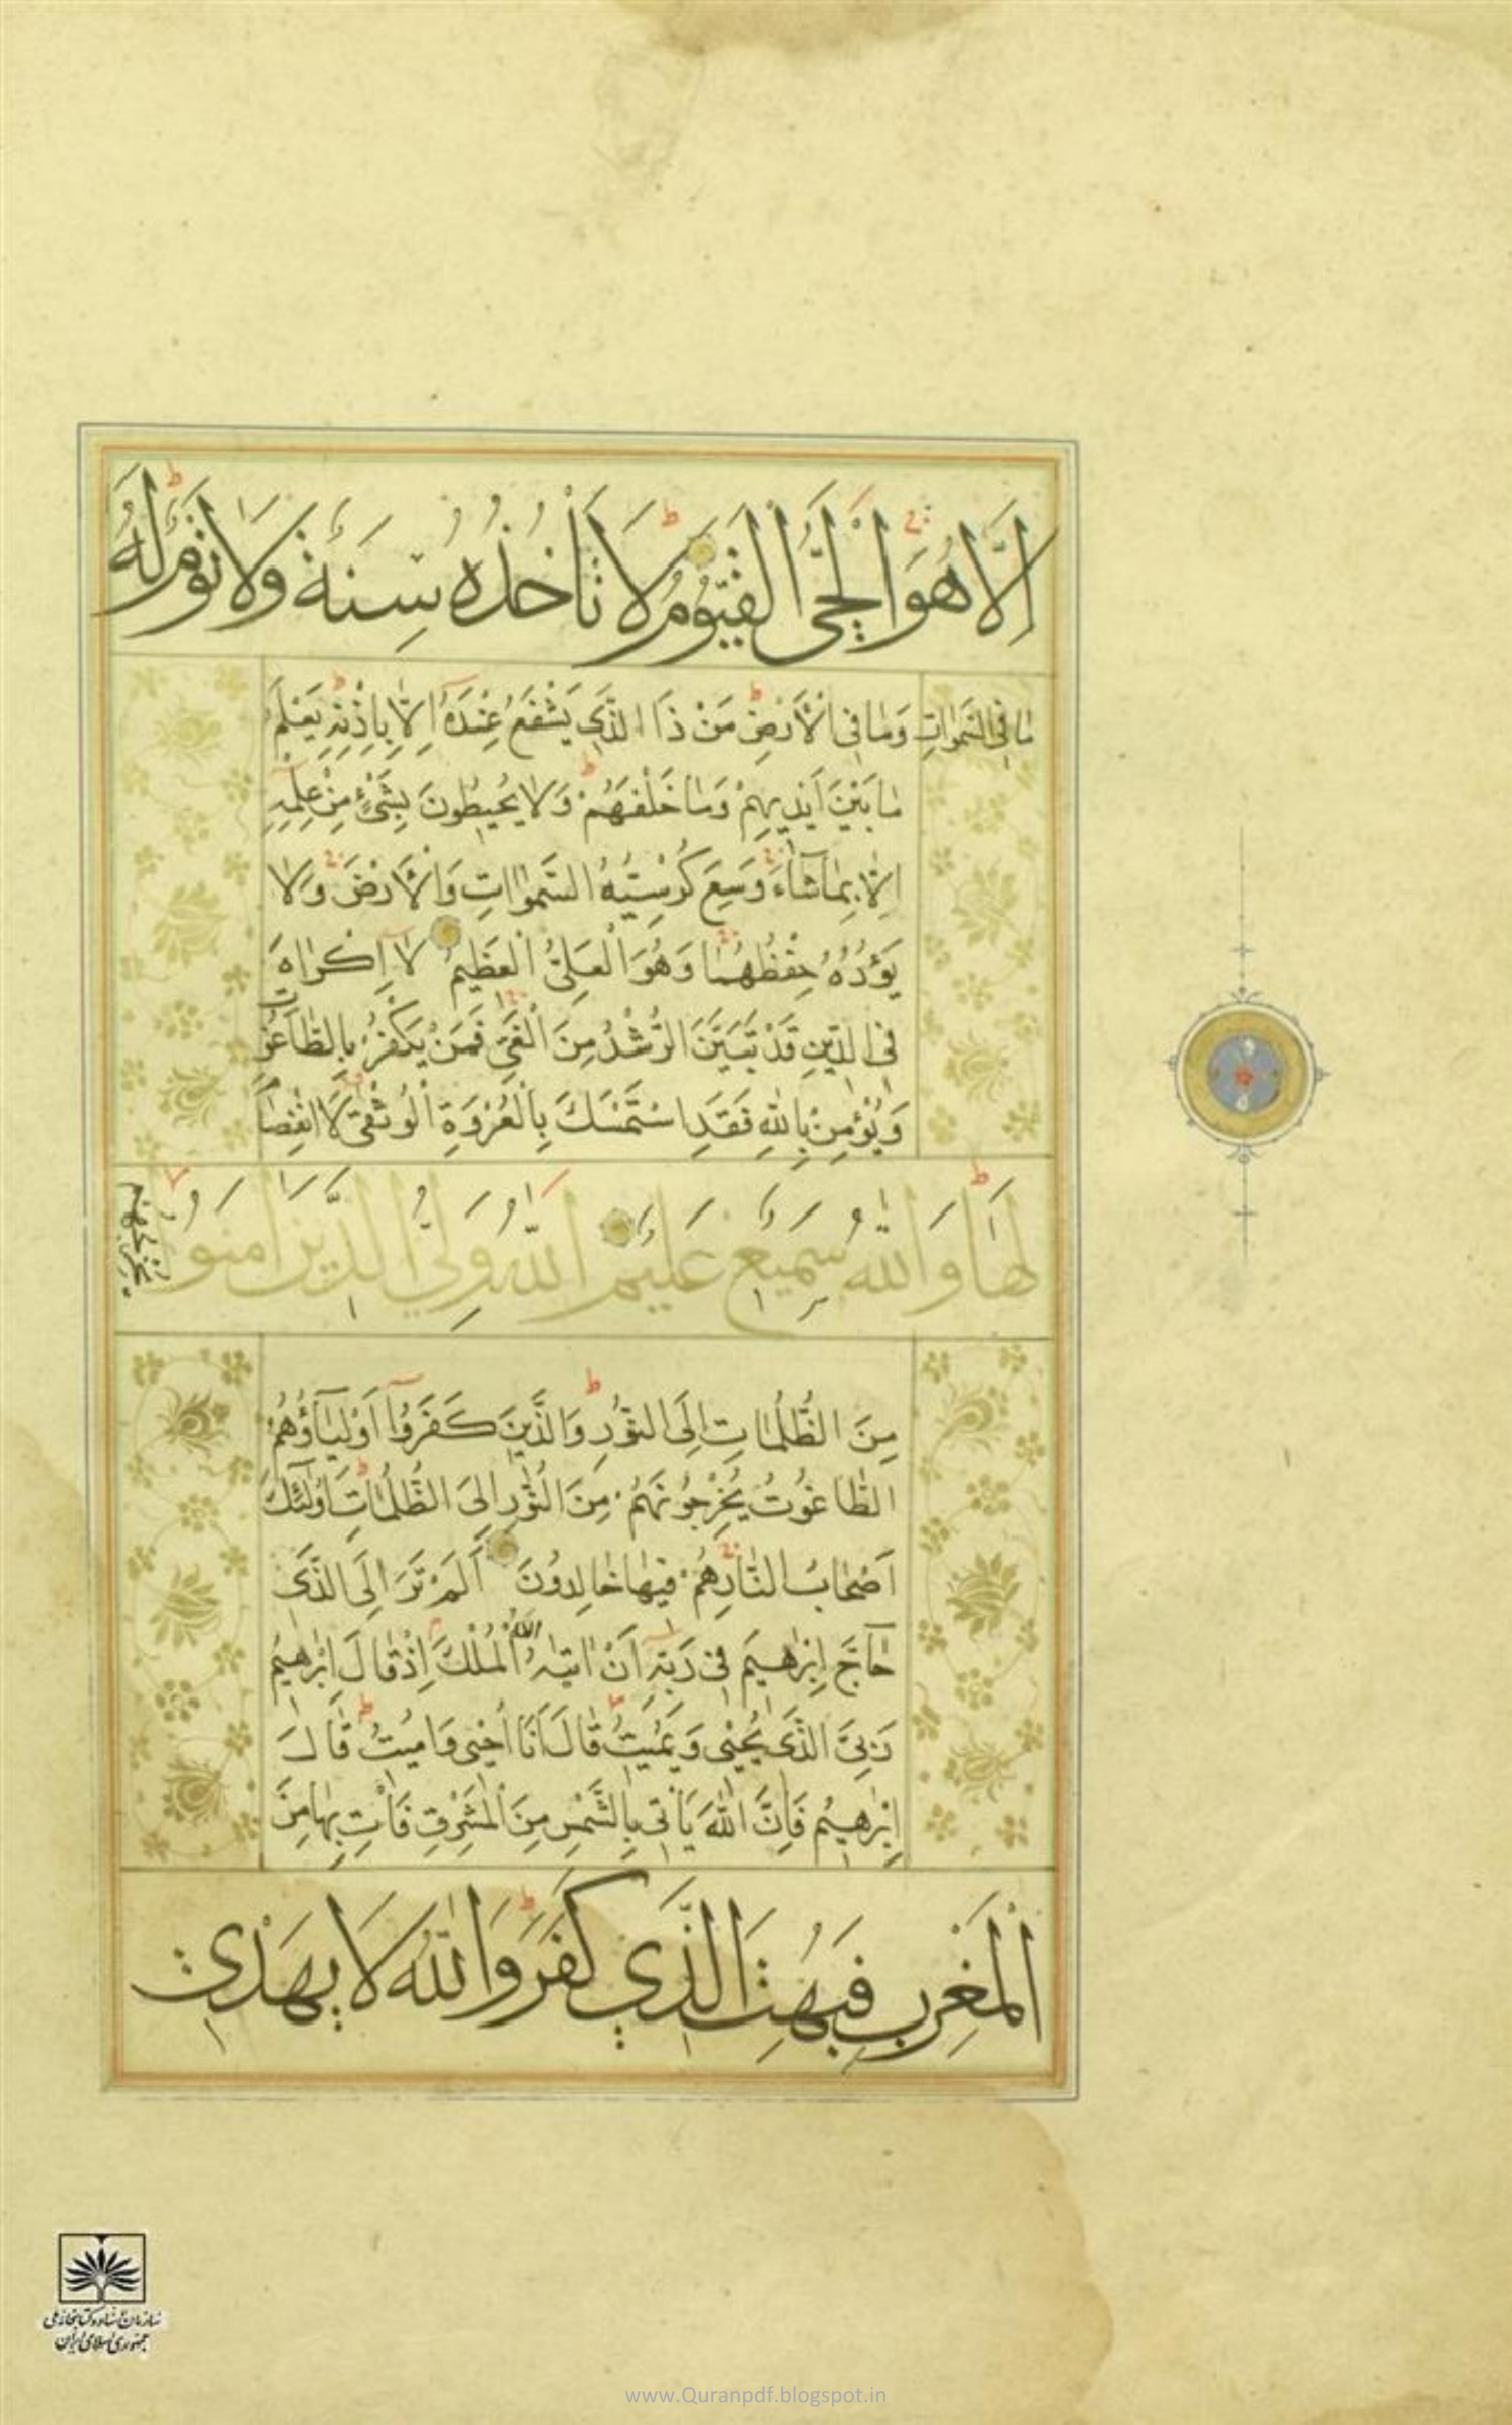 اِلَّا هُوَ الْحَىُّ الْقَيُّومُ لَا تَاْخُذُهُ سِنَةٌ وَلَا نَوْمٌ لَهُ
مٰا فِى السَّمٰوٰاتِ وَمٰا فِى الْاَرْضِ مَنْ ذَا الَّذٖى يَشْفَعُ عِنْدَهُٓ اِلّٰا بِاِذْنِهٖ يَعْلَمُ
مٰا بَيْنَ اَيْدٖيهِمْ وَمٰا خَلْفَهُمْ وَلٰا يُحيٖطُونَ بِشَىْءٍ مِنْ عِلْمِهٖ
اِلّٰا بِمٰا شٰٓاءَ وَسِعَ كُرْسِيُّهُ السَّمٰوٰاتِ وَالْاَرْضَ وَلٰا
يَؤُدُهُ حِفْظُهُمٰا وَهُوَ الْعَلِىُّ الْعَظٖيمُ لٰٓا اِكْرٰاهَ
فِى الدّٖينِ قَدْ تَبَيَّنَ الرُّشْدُ مِنَ الْغَىِّ فَمَنْ يَكْفُرْ بِالطّٰاغُوتِ
وَيُؤْمِنْ بِاللّٰهِ فَقَدِ اسْتَمْسَكَ بِالْعُرْوَةِ الْوُثْقٰى لَا انْفِصٰامَ
لَهٰا وَاللّٰهُ سَمٖيعٌ عَلٖيمٌ اَللّٰهُ وَلِىُّ الَّذٖينَ اٰمَنُوا
يُخْرِجُهُمْ
مِنَ الظُّلُمٰاتِ اِلَى النُّورِ وَالَّذٖينَ كَفَرُوٓا اَوْلِيٰٓاؤُهُمُ
الطّٰاغُوتُ يُخْرِجُونَهُمْ مِنَ النُّورِ اِلَى الظُّلُمٰاتِ اُولٰٓئِكَ
اَصْحٰابُ النّٰارِ هُمْ فٖيهٰا خٰالِدُونَ اَلَمْ تَرَ اِلَى الَّذٖى
حٰٓاجَّ اِبْرٰهٖيمَ فٖى رَبِّهٖٓ اَنْ اٰتٰيهُ اللّٰهُ الْمُلْكَ اِذْ قٰالَ اِبْرٰهٖيمُ
رَبِّىَ الَّذٖى يُحْيٖى وَيُمٖيتُ قٰالَ اَنَا اُحْيٖى وَاُمٖيتُ قٰالَ
اِبْرٰهٖيمُ فَاِنَّ اللّٰهَ يَاْتٖى بِالشَّمْسِ مِنَ الْمَشْرِقِ فَاْتِ بِهٰا مِنَ
الْمَغْرِبِ فَبُهِتَ الَّذٖى كَفَرَ وَاللّٰهُ لَا يَهْدِى
سازمان اسناد و کتابخانه ملی
جمهوری اسلامی ایران
www.Quranpdf.blogspot.in